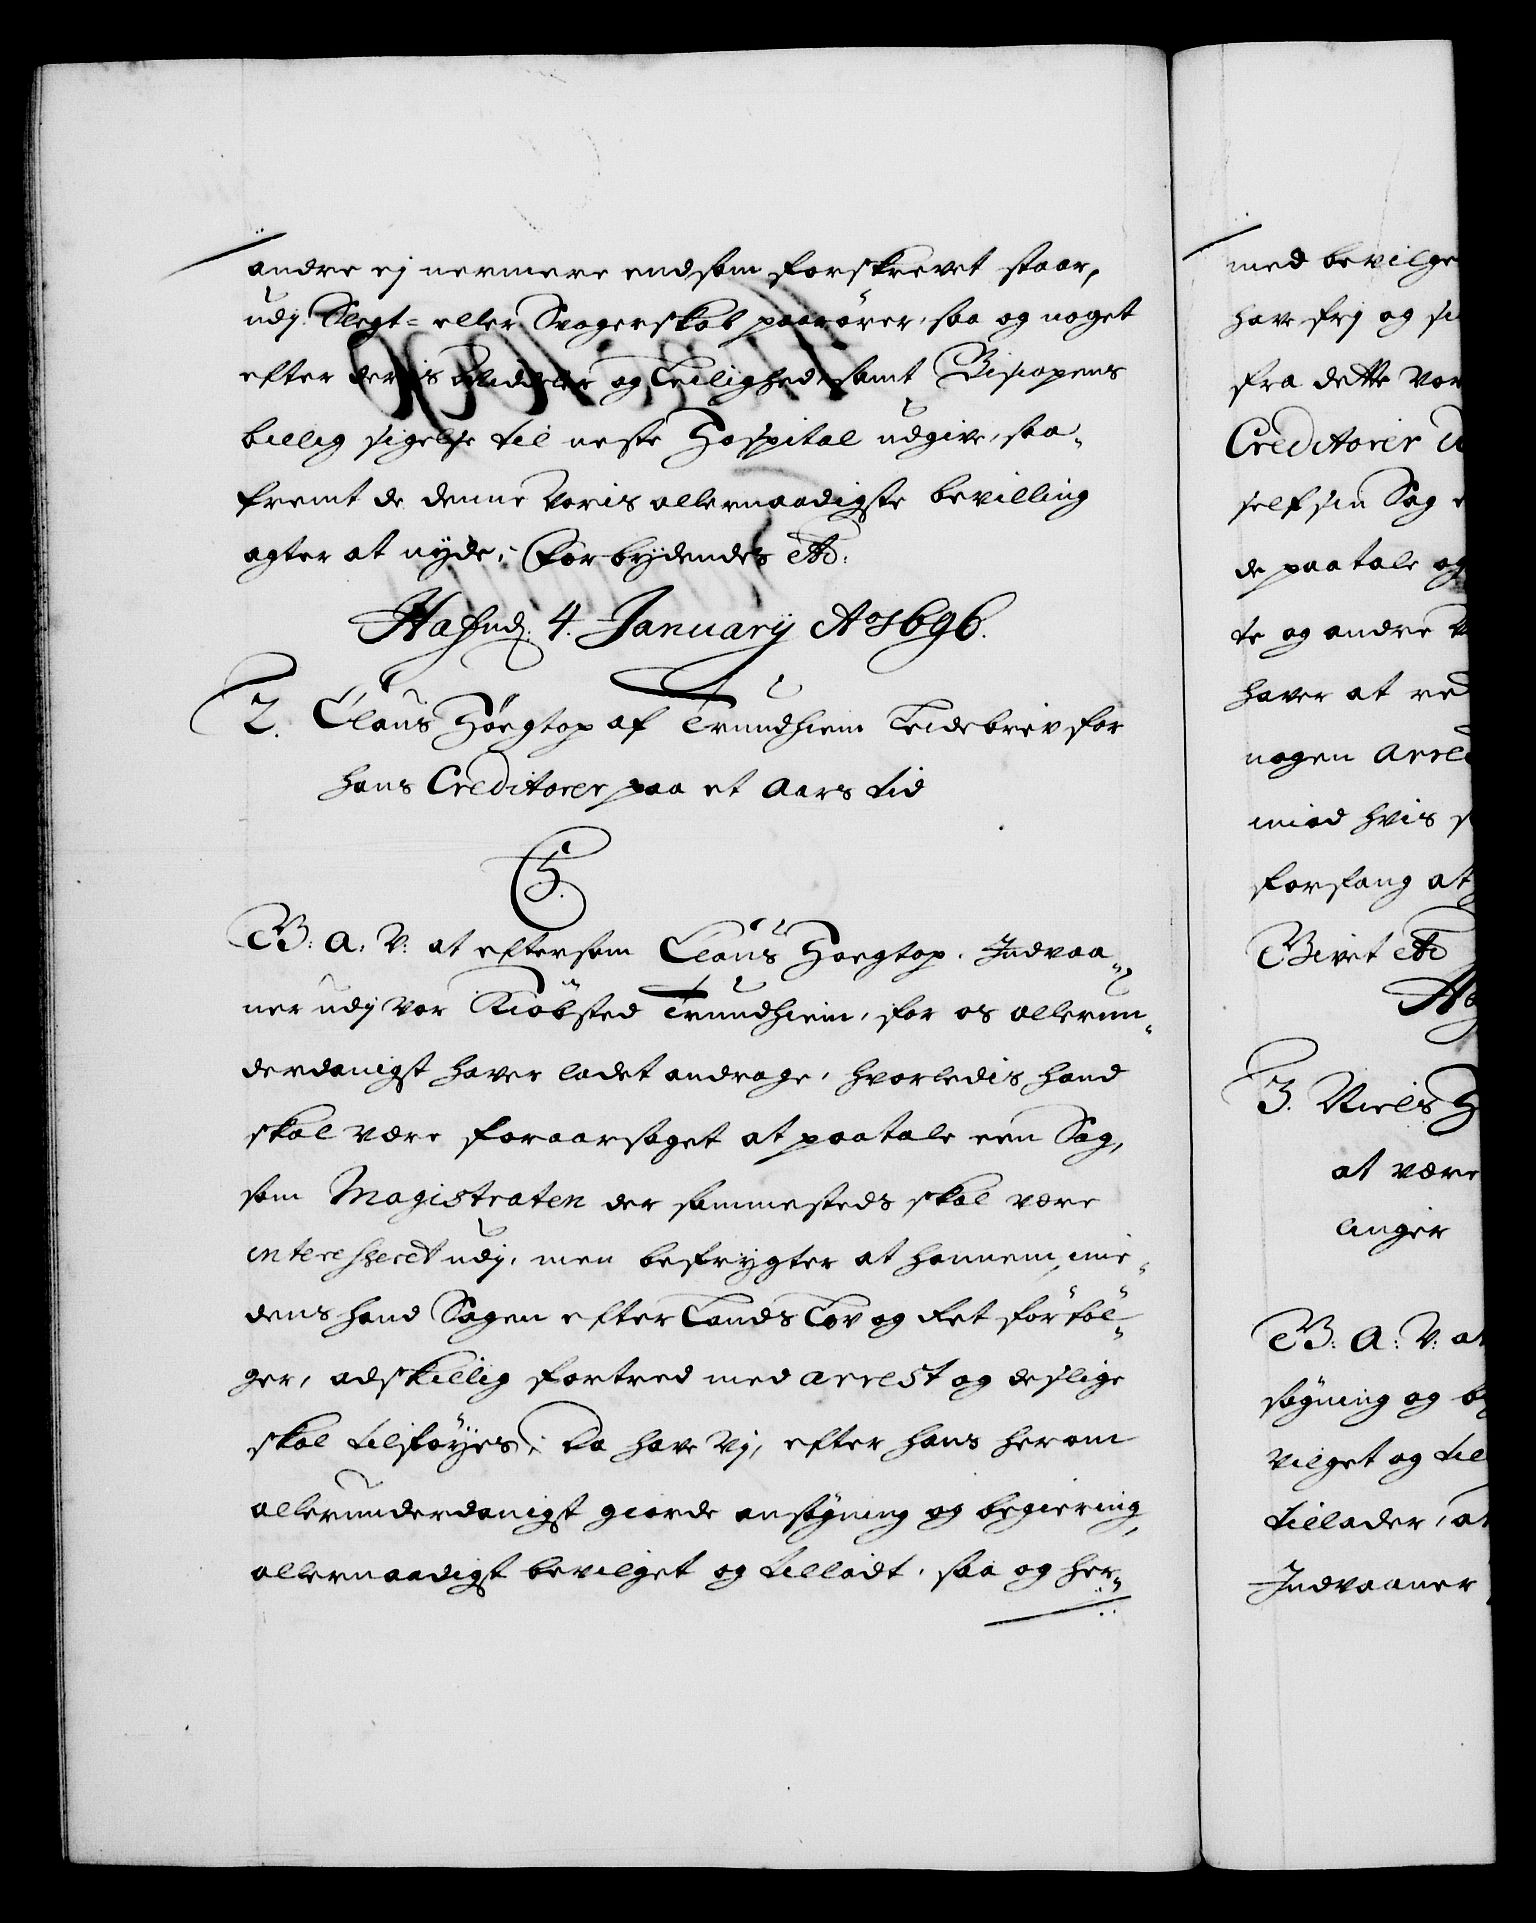 andre ej nermere end som forskrevet staar,
udj Slegt- eller Svogerskab paarörer, saa og noget
efter deris Middeler og Leilighed, samt Biscopens
billig sigelse til neste Hospital udgive, saa-
fremt de denne voris allernaadigste bevilling
agter at nyde; Forbydendes etc:
Hafnd. 4. Januarij Ao 1696.
2. Claus Höegtop af Trundhiem Leidebrev for
hans Creditorer paa et aars tid
C5.
G: A: V: at eftersom Claus Hoegtop, Indvaa-
ner udj vor Kiöbsted Trundhiem, for os allerun-
derdanigst haver ladet andrage, hvorledis hand
skal være foraarsaget at paatale een Sag,
som Magistraten der sammesteds skal være
interesseret udj, men befrygter at hannem, mie-
dens hand Sagen efter Lands Lov og Ret forföl-
ger, adskillig fortred med arrest og deslige
skal tilföyes; Da have Vj, efter hans herom
allerunderdanigst giorde ansögning og begiering,
allernaadigst bevilget og tilladt, saa og her-
med bevilge
have frj og
fra dette vor
Creditorer
self sin Sag
de paatale og
te og andre
haver at red
nogen arre
imod hvis
forfang at
Givet etc
3. Niels H
at være
linger
G: A: V: at
søgning og be
vilget og til
tillader, at
Indvaaner